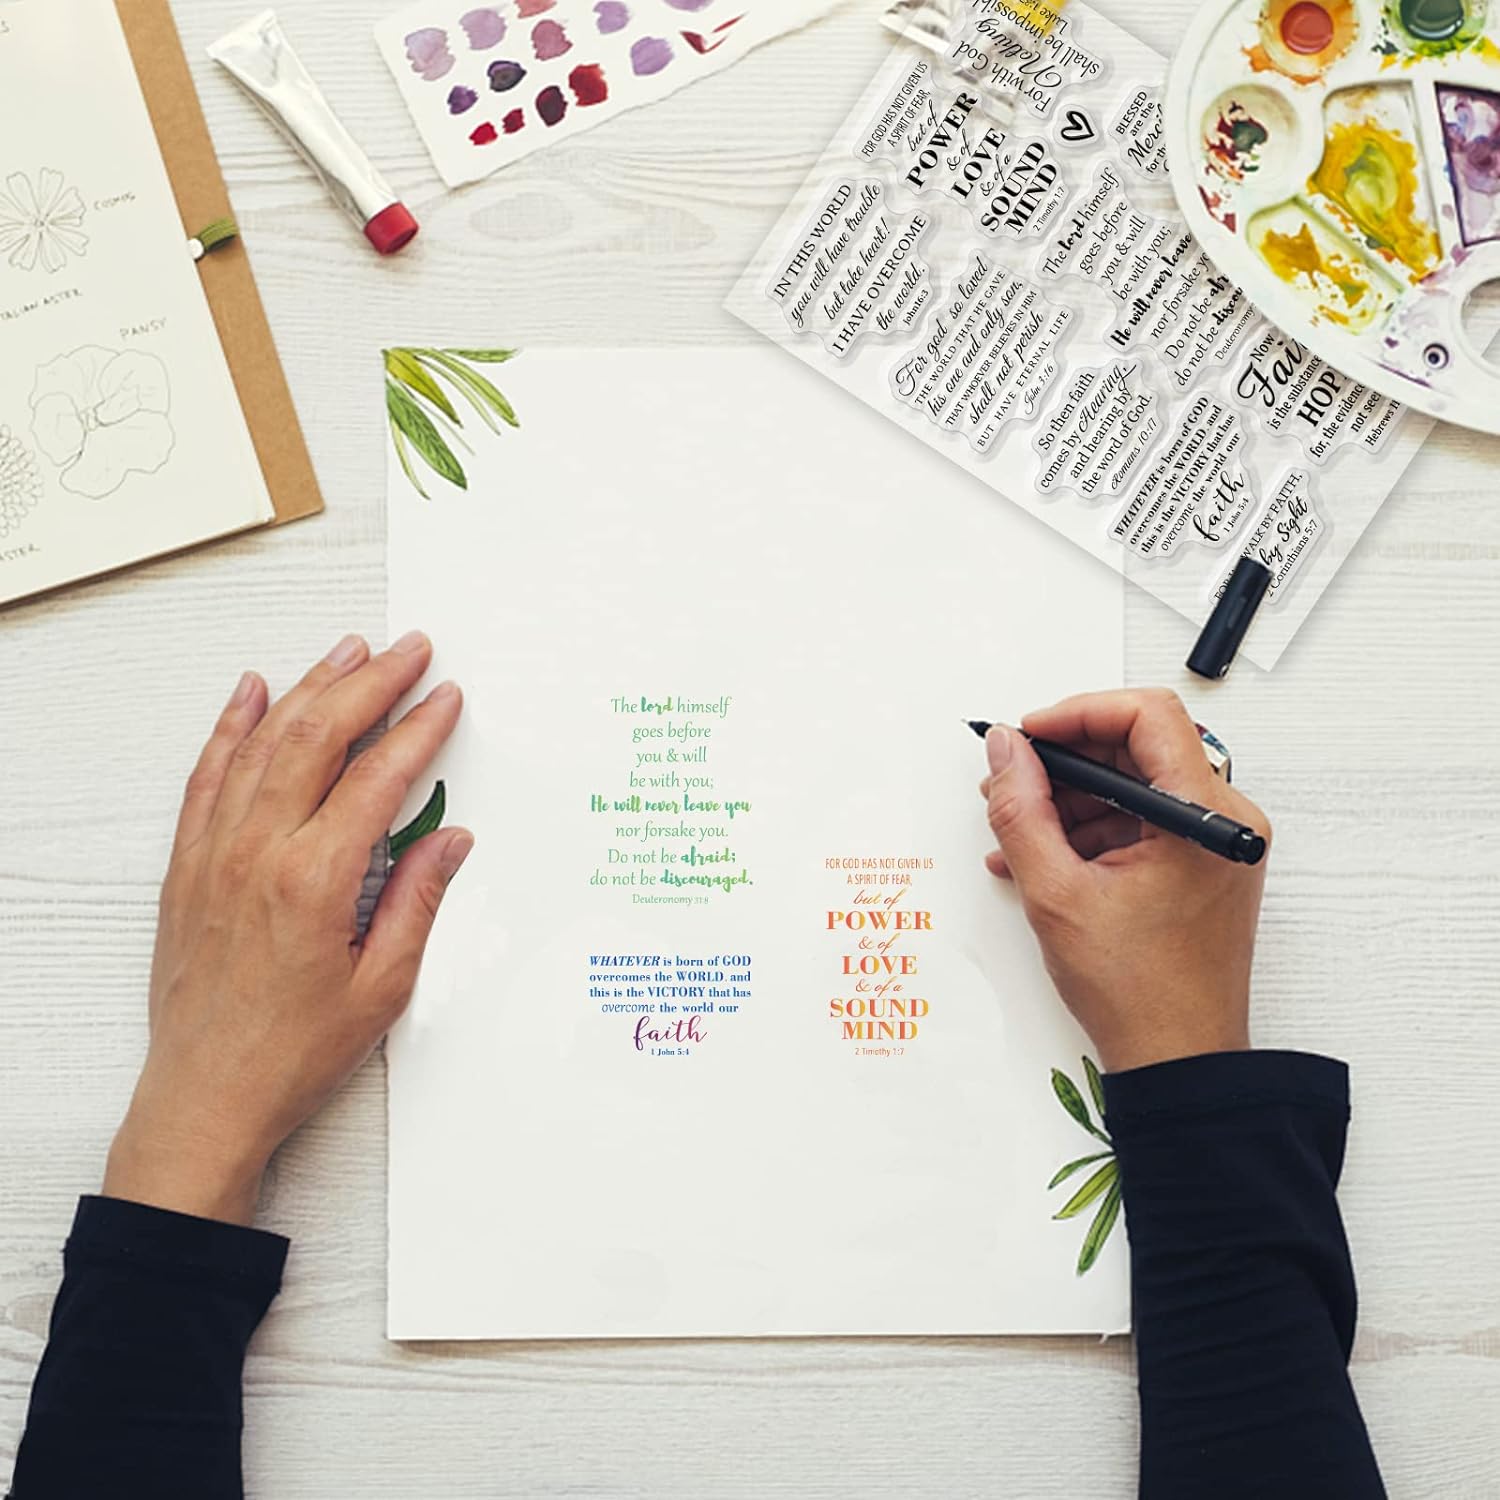 COSMOS
ITALIAN ASTER
PANSY
ASTER
For with God
Nothing
shall be impossible
Luke
FOR GOD HAS NOT GIVEN US
A SPIRIT OF FEAR,
but of
POWER
& of
LOVE
& of a
SOUND
MIND
2 Timothy 1:7
BLESSED
are the
for th
IN THIS WORLD
you will have trouble
but take heart!
I HAVE OVERCOME
the world.
John16:3
The lord himself
goes before
you & will
be with you;
He will never leave
nor forsake yo
Do not be afr
do not be discou
Deuteronomy
For god so loved
THE WORLD THAT HE GAVE
his one and only son,
THAT WHOEVER BELIEVES IN HIM
shall not perish
BUT HAVE ETERNAL LIFE
John 3:16
Now
Fai
is the substance
HOP
for, the evidence
not see
Hebrews
So then faith
comes by Hearing,
and hearing by
the word of God.
Romans 10:17
WHATEVER is born of GOD
overcomes the WORLD. and
this is the VICTORY that has
overcome the world our
faith
1 John 5:4
FOR WALK BY FAITH,
by Sight
2 Corinthians 5:7
The lord himself
goes before
you & will
be with you;
He will never leave you
nor forsake you.
Do not be afraid;
do not be discouraged.
Deuteronomy 31:8
WHATEVER is born of GOD
overcomes the WORLD. and
this is the VICTORY that has
overcome the world our
faith
1 John 5:4
FOR GOD HAS NOT GIVEN US
A SPIRIT OF FEAR,
but of
POWER
& of
LOVE
& of a
SOUND
MIND
2 Timothy 1:7